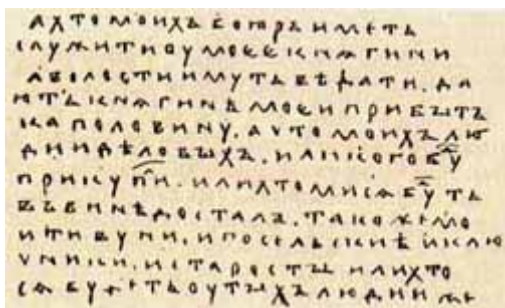 а хто моихъ боꙗръ иметь
служити оу моее кнѧгини
а волости имуть вѣдати. да
ють кнѧгинѣ моеи прибытъ
ка половину. а что моихъ лю
дии дѣловыхъ. или кого бу҃
прикупи҃. или хто ми сѧ бу҃ть
въ винѣ досталъ. тако же мо
и тивуни. и посельскиѣ и клю
чники. и старосты или хто
сѧ будеть оу тыхъ людии же